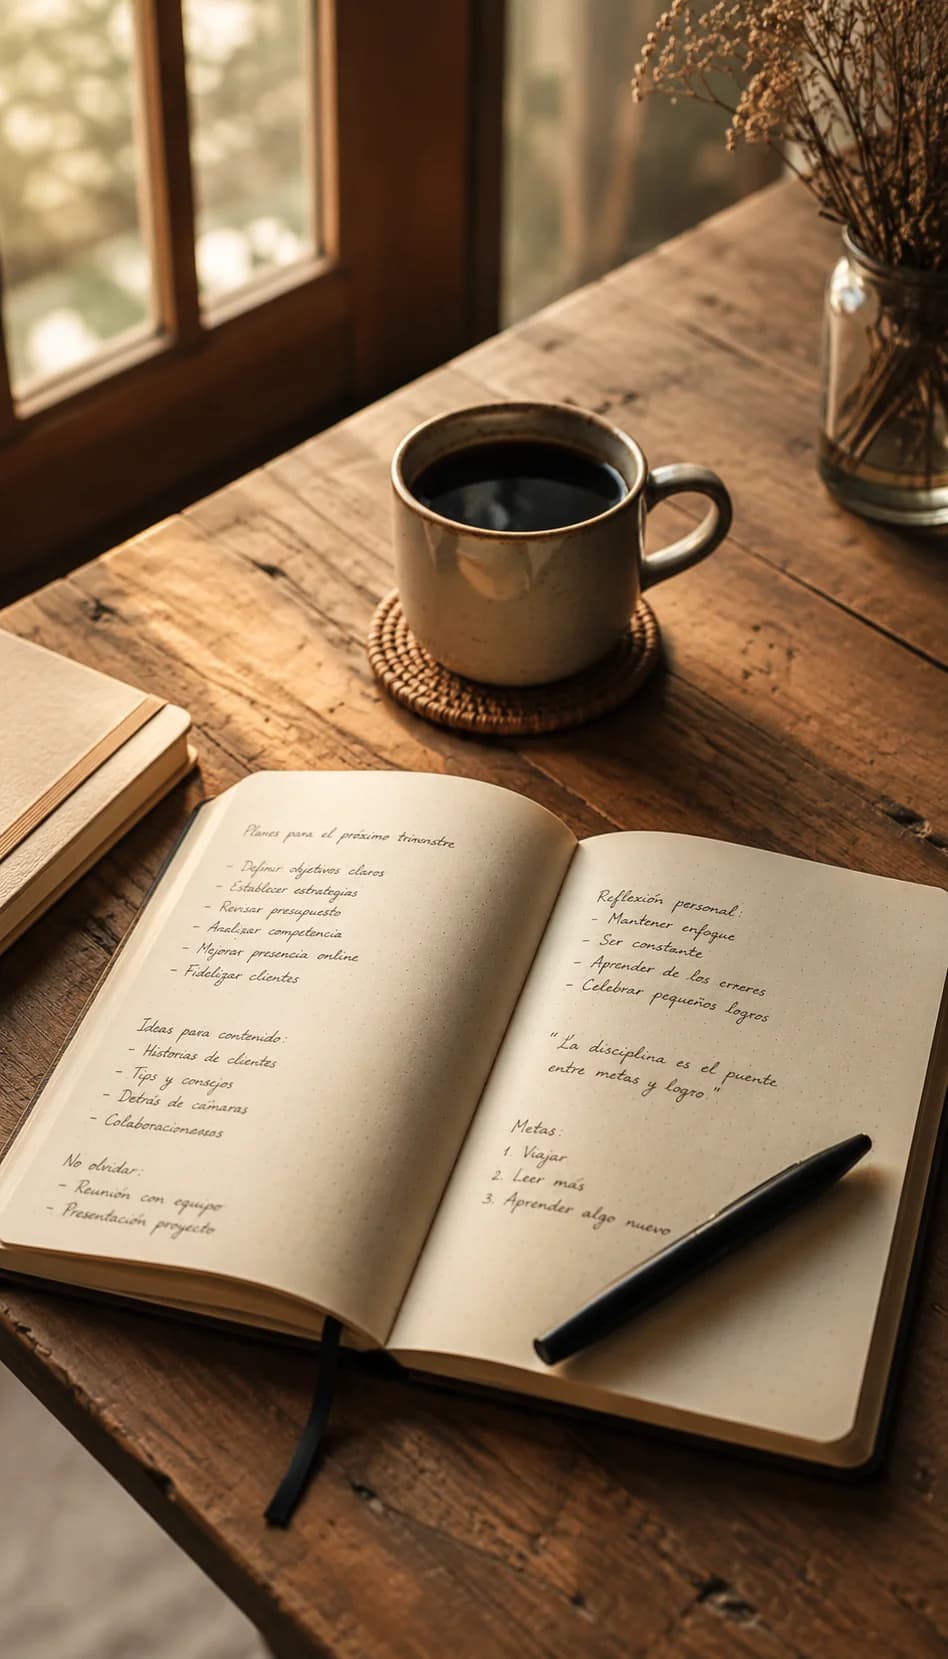 Planes para el próximo trimestre
- Definir objetivos claros
- Establecer estrategias
- Revisar presupuesto
- Analizar competencia
- Mejorar presencia online
- Fidelizar clientes
Ideas para contenido:
- Historias de clientes
- Tips y consejos
- Detrás de cámaras
- Colaboracionessos
No olvidar:
- Reunión con equipo
- Presentación proyecto
Reflexión personal:
- Mantener enfoque
- Ser constante
- Aprender de los erreres
- Celebrar pequeños logros
"La disciplina es el puente
entre metas y logro"
Metas:
1. Viajar
2. Leer más
3. Aprender algo nuevo